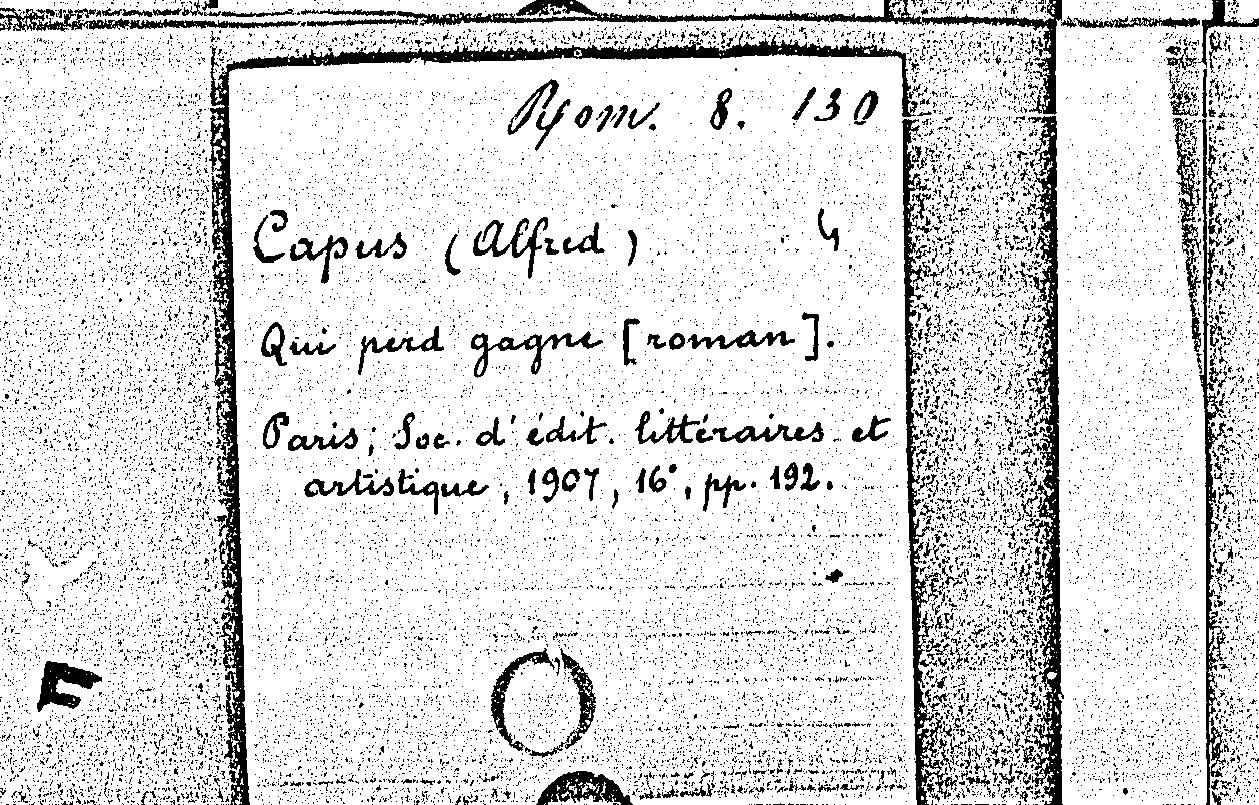 Rom. 8. 130
Capus (Alfred) 4
Qui perd gagne [roman].
Paris; Soc. d'édit. littéraires et
artistique, 1907, 16°, pp. 192.
F